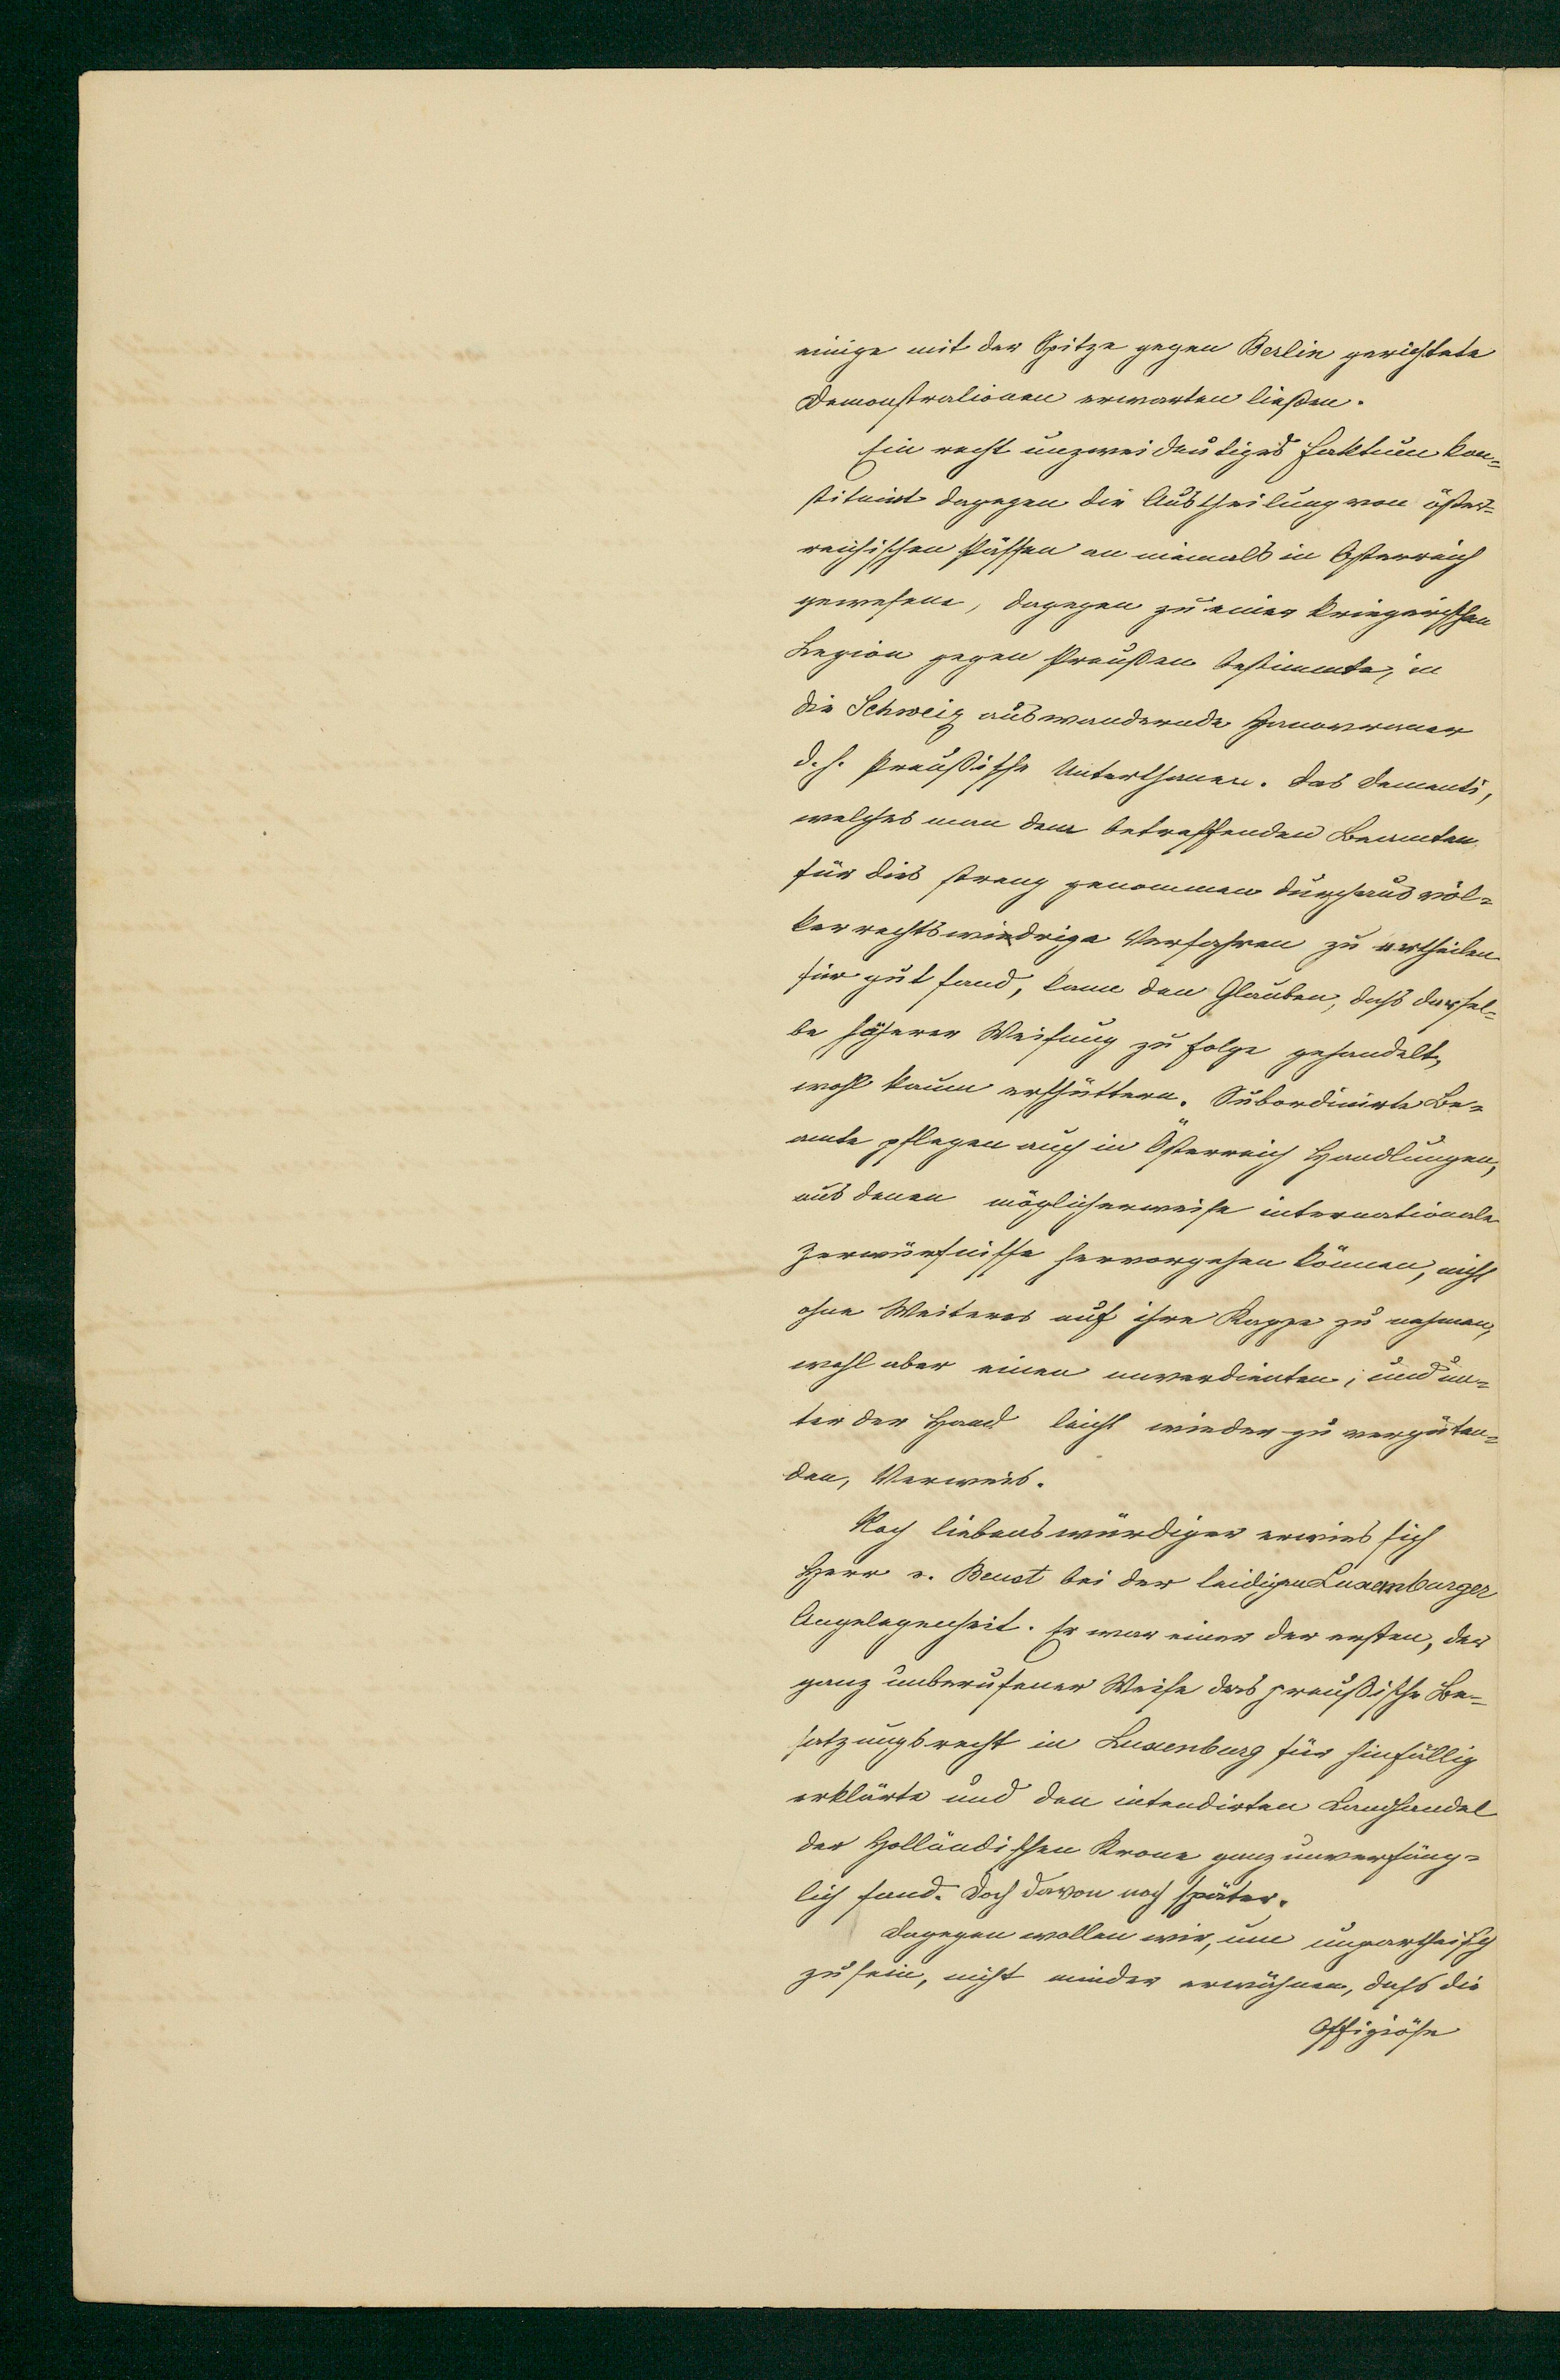 einige mit der Spitze gegen Berlin gerichtete
Demonstrationen erwarten ließen.
Ein recht unzweideutiges Faktum kon-
stituirt dagegen die Austheilung von öster-
reichischen Pässen an niemals in Österreich
gewesene, dagegen zu einer kriegerischen
Legion gegen Preußen bestimmte, in
die Schweiz auswandernde Hanoveraner
d. h. Preußische Unterthanen. Das Dementi,
welches man dem betreffenden Beamten
für dies streng genommen durchaus völ-
kerrechtswiedrige Verfahren zu ertheilen
für gut fand, kann den Glauben, daß dersel-
be höherer Weisung zu folge gehandelt,
wohl kaum erschüttern. Subordinirte Be-
amte pflegen auch in Österreich Handlungen,
aus denen möglicherweise internationale
Zerwürfnisse hervorgehen können, nicht
ohne Weiteres auf ihre Kappe zu nehmen,
wohl aber einen unverdienten, und un-
ter der Hand leicht wieder zu vergüten-
den, Verweis.
Noch liebenswürdiger erwies sich
Herr v. Beust bei der leidigen Luxemburger
Angelegenheit. Er war einer der ersten, der
ganz unberufener Weise das preußische Be-
satzungsrecht in Luxenburg für hinfällig
erklärte und den intendirten Landhandel
der Holländischen Krone ganz unverfäng-
lich fand. Doch davon noch später.
Dagegen wollen wir, um unpartheiisch
zu sein, nicht minder erwähnen, daß die
Offiziöse